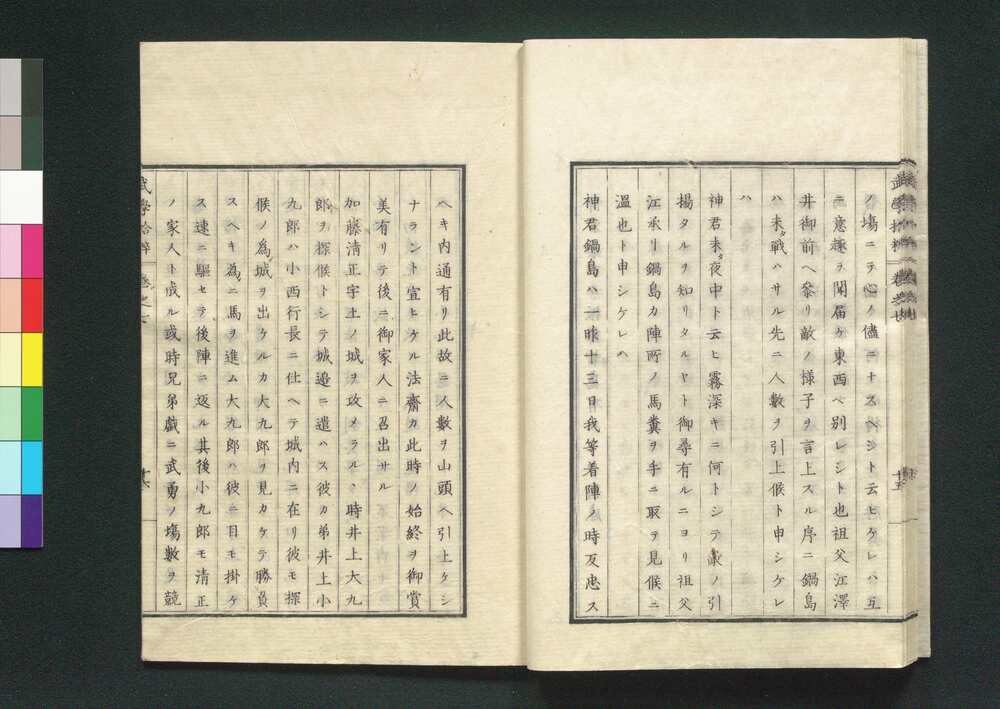 ノ塲ニテ心ノ儘ニナスヘシト云ヒケレハ五
ニ意趣ヲ聞届ケ東西ヘ別レシト也祖父江澤
井御前ヘ參リ敵ノ樣子ヲ言上スル序ニ鍋島
ハ未タ戰ハサル先ニ人數ヲ引上候ト申シケレ
ハ
神君未タ夜中ト云ヒ霧深キニ何トシテ敵ノ引
揚タルヲ知リタルヤト御尋有ルニヨリ祖父
江承リ鍋島カ陣所ノ馬糞ヲ手ニ取ヲ見候ニ
溫也ト申シケレヘ
神君鍋島ハ一昨十三日我等着陣ノ時反忠ス
ヘキ内通有リ此故ニ人數ヲ山頭ヘ引上ケシ
ナラント宣ヒケル法齋カ此時ノ始終ヲ御賞
美有リテ後ニ御家人ニ召出サル
加藤清正宇土ノ城ヲ攻メラルヽ時井上大九
郎ヲ探候トシテ城邉ニ遣ハス彼カ弟井土小
九郎ハ小西行長ニ仕ヘテ城内ニ在リ彼モ探
候ノ爲城ヲ出ケルカ大九郎ヲ見カケテ勝負
スヘキ爲ニ馬ヲ進ム大九郎ハ彼ニ目モ掛ケ
ス速ニ驅セテ後陣ニ返ル其後小九郎モ清正
ノ家人ト成ル或時兄弟戲ニ武勇ノ塲數ヲ競
武學拾粹